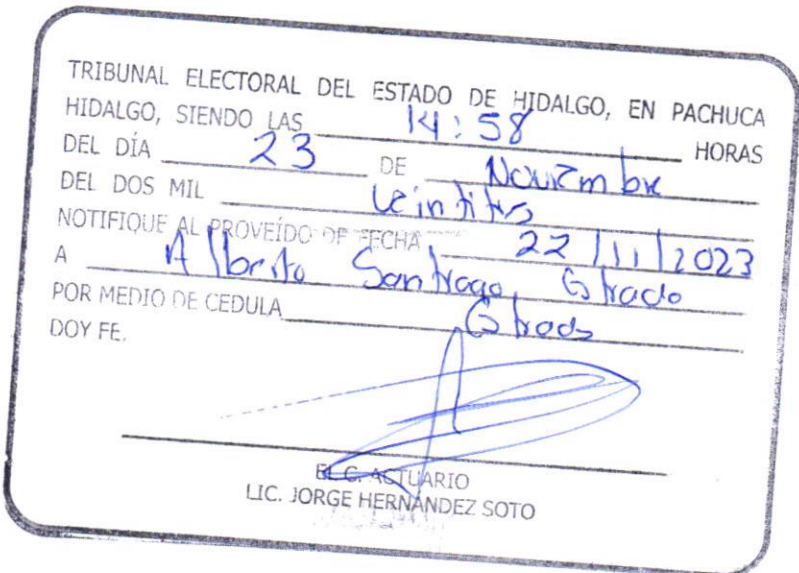 TRIBUNAL ELECTORAL DEL ESTADO DE HIDALGO, EN PACHUCA
HIDALGO, SIENDO LAS 14:58 HORAS
DEL DÍA 23 DE Noviembre
DEL DOS MIL Veintitrs
NOTIFIQUE AL PROVEÍDO DE FECHA 22/11/2023
A Alberto Santiago, Estrado
POR MEDIO DE CEDULA Estrado
DOY FE.
EL C. ACTUARIO
LIC. JORGE HERNÁNDEZ SOTO